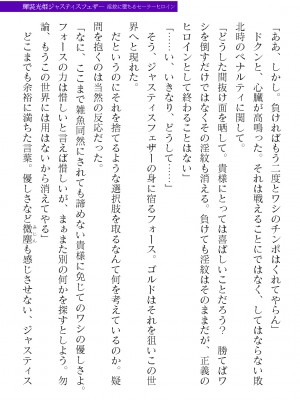 輝装光姫ジャスティスフェザー 
「ああ、しかし。負ければもう二度とワシのチンポはくれてやらん」
ドクンと、心臓が高鳴った。それは戦えることにではなく、してはならない敗
北時のペナルティに関して。
「どうした間抜け面を晒して。貴様にとっては喜ばしいことだろう？　勝てばワ
シを倒すだけではなくその淫紋も消える。負けても淫紋はそのままだが、正義の
ヒロインとして終わることもない」
「……い、いきなり、どうして……」
そう、ジャスティスフェザーの身に宿るフォース。ゴルドはそれを狙いこの世
界へと現れた。
だというのにそれを捨てるような選択肢を取るなんて何を考えているのか。疑
問を抱くのは当然の反応だった。
「なに、ここまで雑魚同然にされても諦めない貴様に免じてのワシの優しさよ。
フォースの力は惜しいと言えば惜しいが、まぁまた別の何かを探すとしよう。勿
論、もうこの世界には用はないから消えてやる」
どこまでも余裕に満ちた言葉。優しさなど微塵も感じさせない、ジャスティス